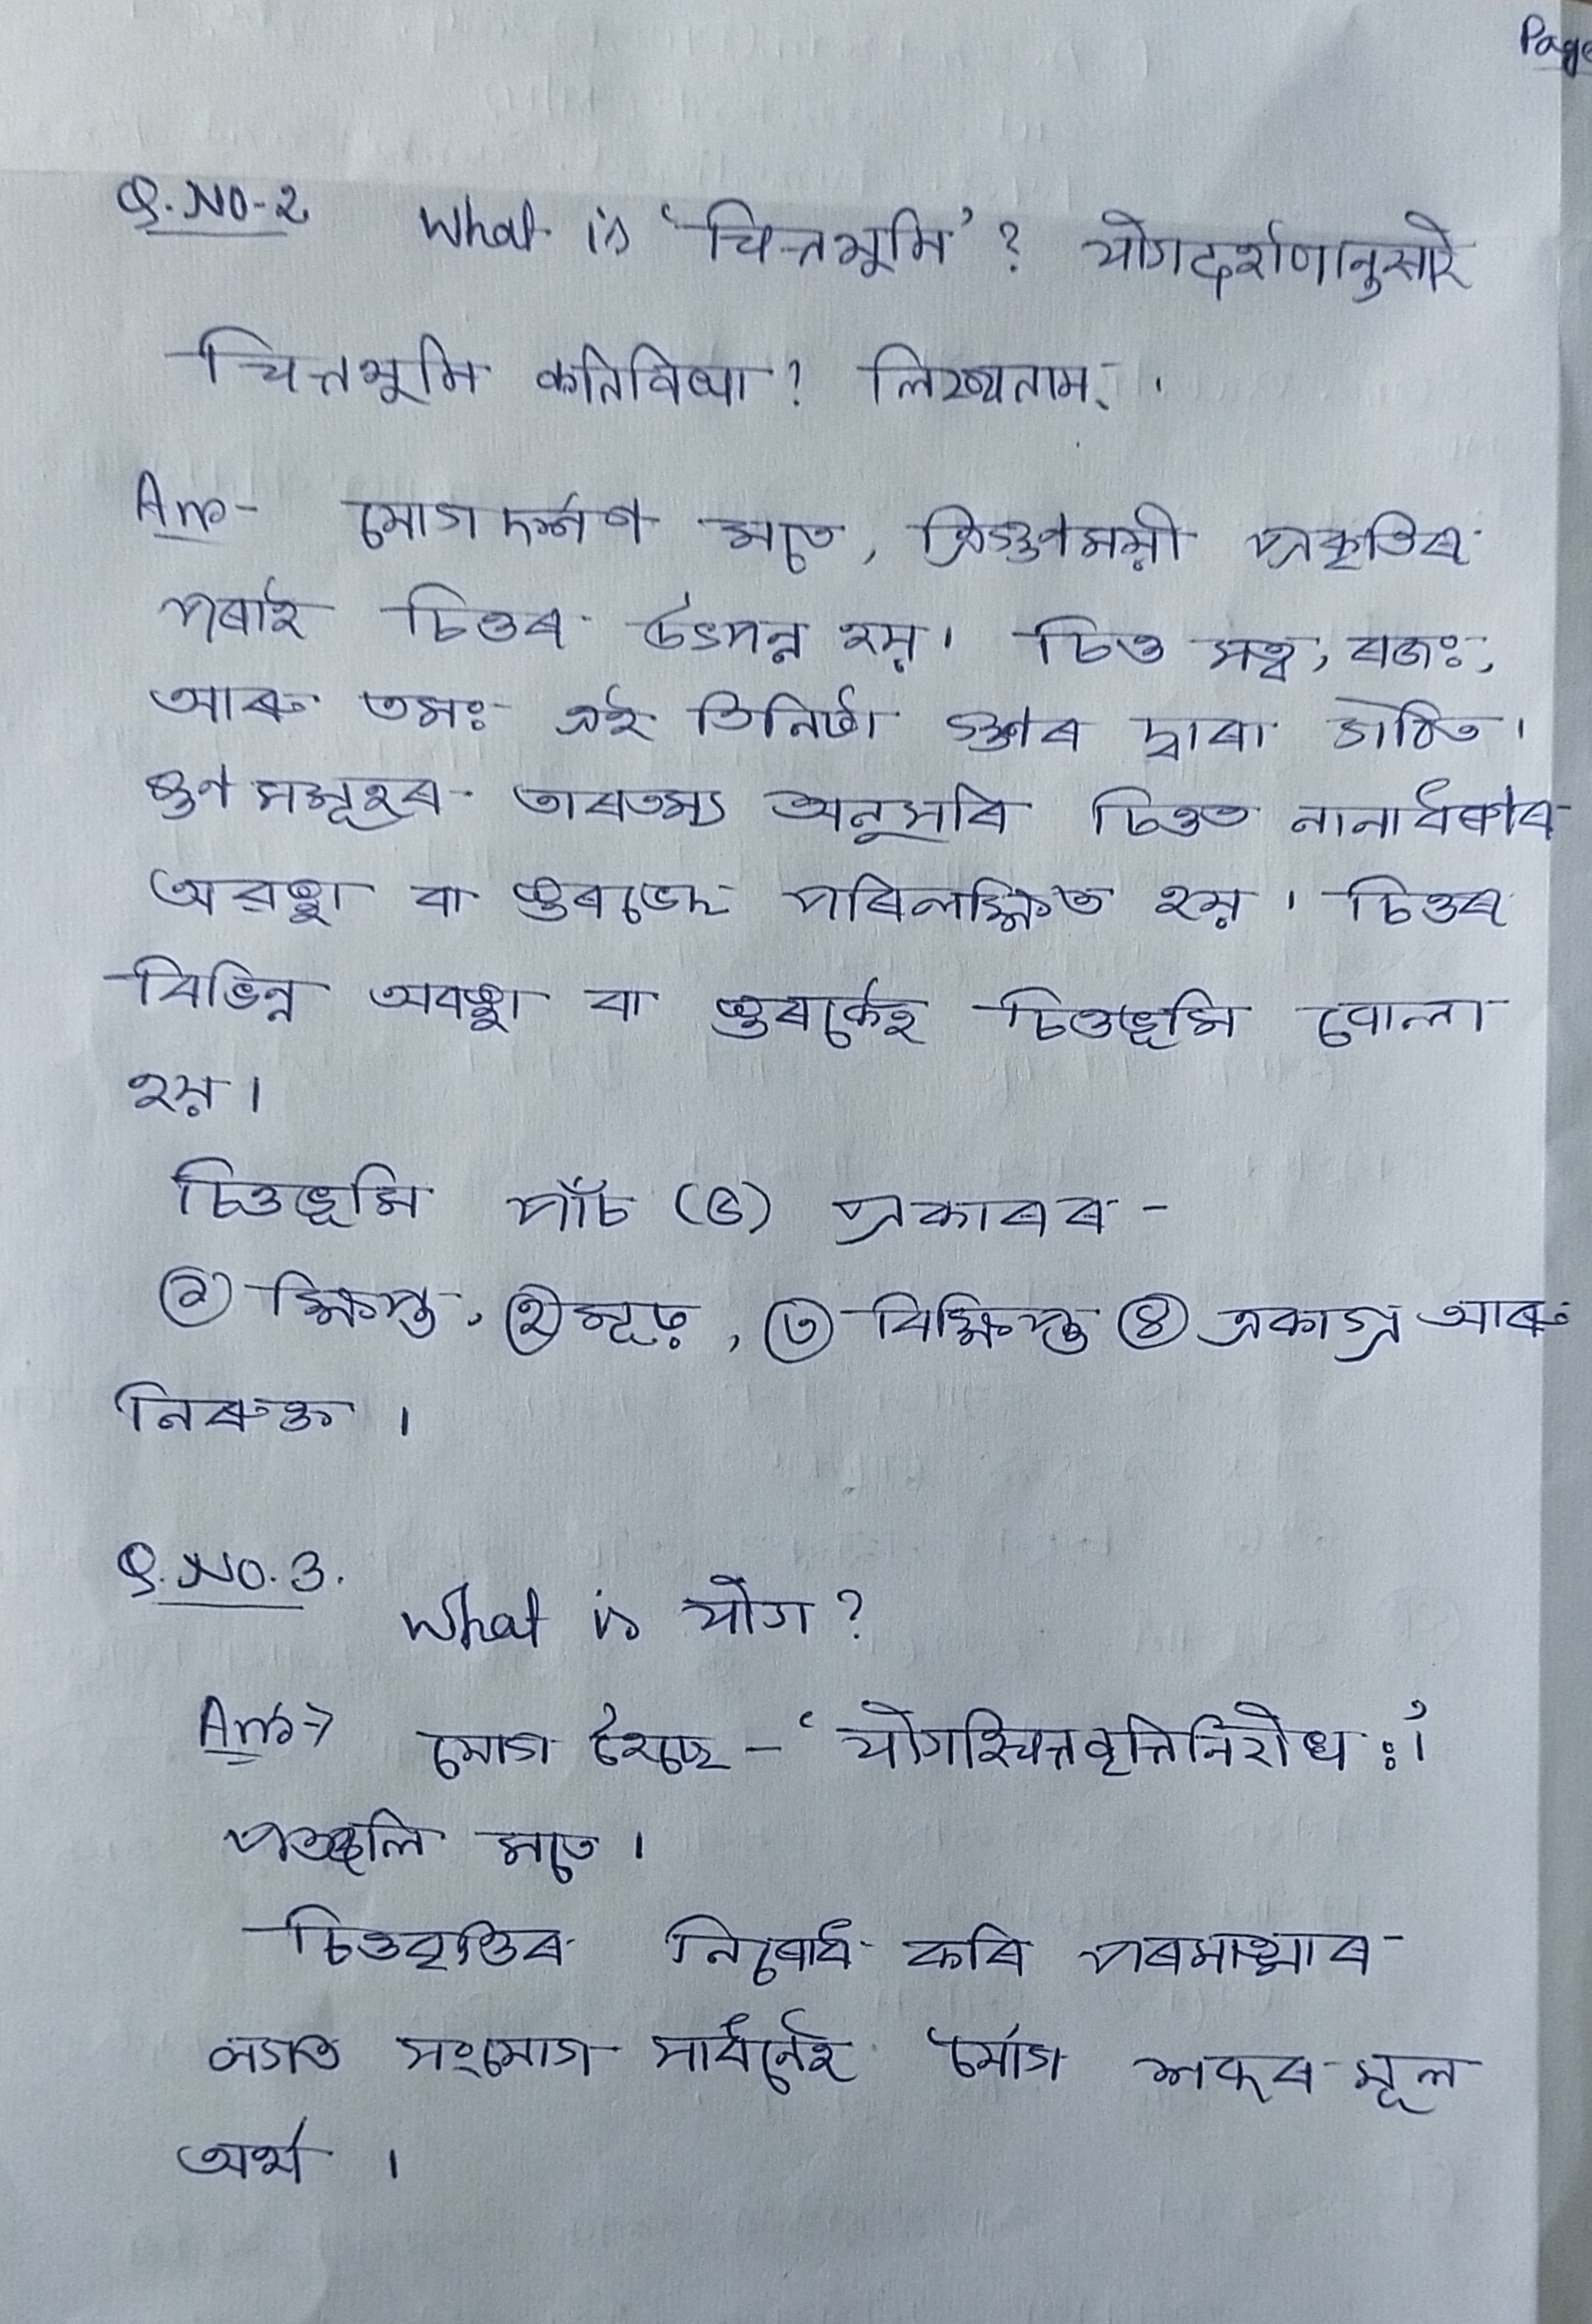 Page
Q.No-2 What is 'चित्तभूमि'? योगदर्शणानुसारे
चित्तभूमि कतिविधा? लिख्यताम् ।
Ans- যোগদৰ্শণ মতে, ত্ৰিগুণময়ী প্ৰকৃতিৰ
পৰাই চিত্তৰ উৎপন্ন হয়। চিত্ত সত্ত্ব, ৰজঃ,
আৰু তমঃ এই তিনিটা গুণৰ দ্বাৰা গঠিত।
গুণ সমূহৰ তাৰতম্য অনুসৰি চিত্তত নানাধৰণৰ
অৱস্থা বা স্তৰভেদ পৰিলক্ষিত হয়। চিত্তৰ
বিভিন্ন অবস্থা বা স্তৰকেই চিত্তভূমি বোলা
হয়।
চিত্তভূমি পাঁচ (৫) প্ৰকাৰৰ -
① ক্ষিপ্ত, ② মূঢ়, ③ বিক্ষিপ্ত ④ একাগ্ৰ আৰু
নিৰুদ্ধ ।
Q.No.3. What is योग?
Ans→ যোগ হৈছে - 'योगश्चित्तवृत्तिनिरोधः।'
পতঞ্জলি মতে।
চিত্তবৃত্তিৰ নিৰোধ কৰি পৰমাত্মাৰ
লগত সংযোগ সাধনেই যোগ শব্দৰ মূল
অৰ্থ ।